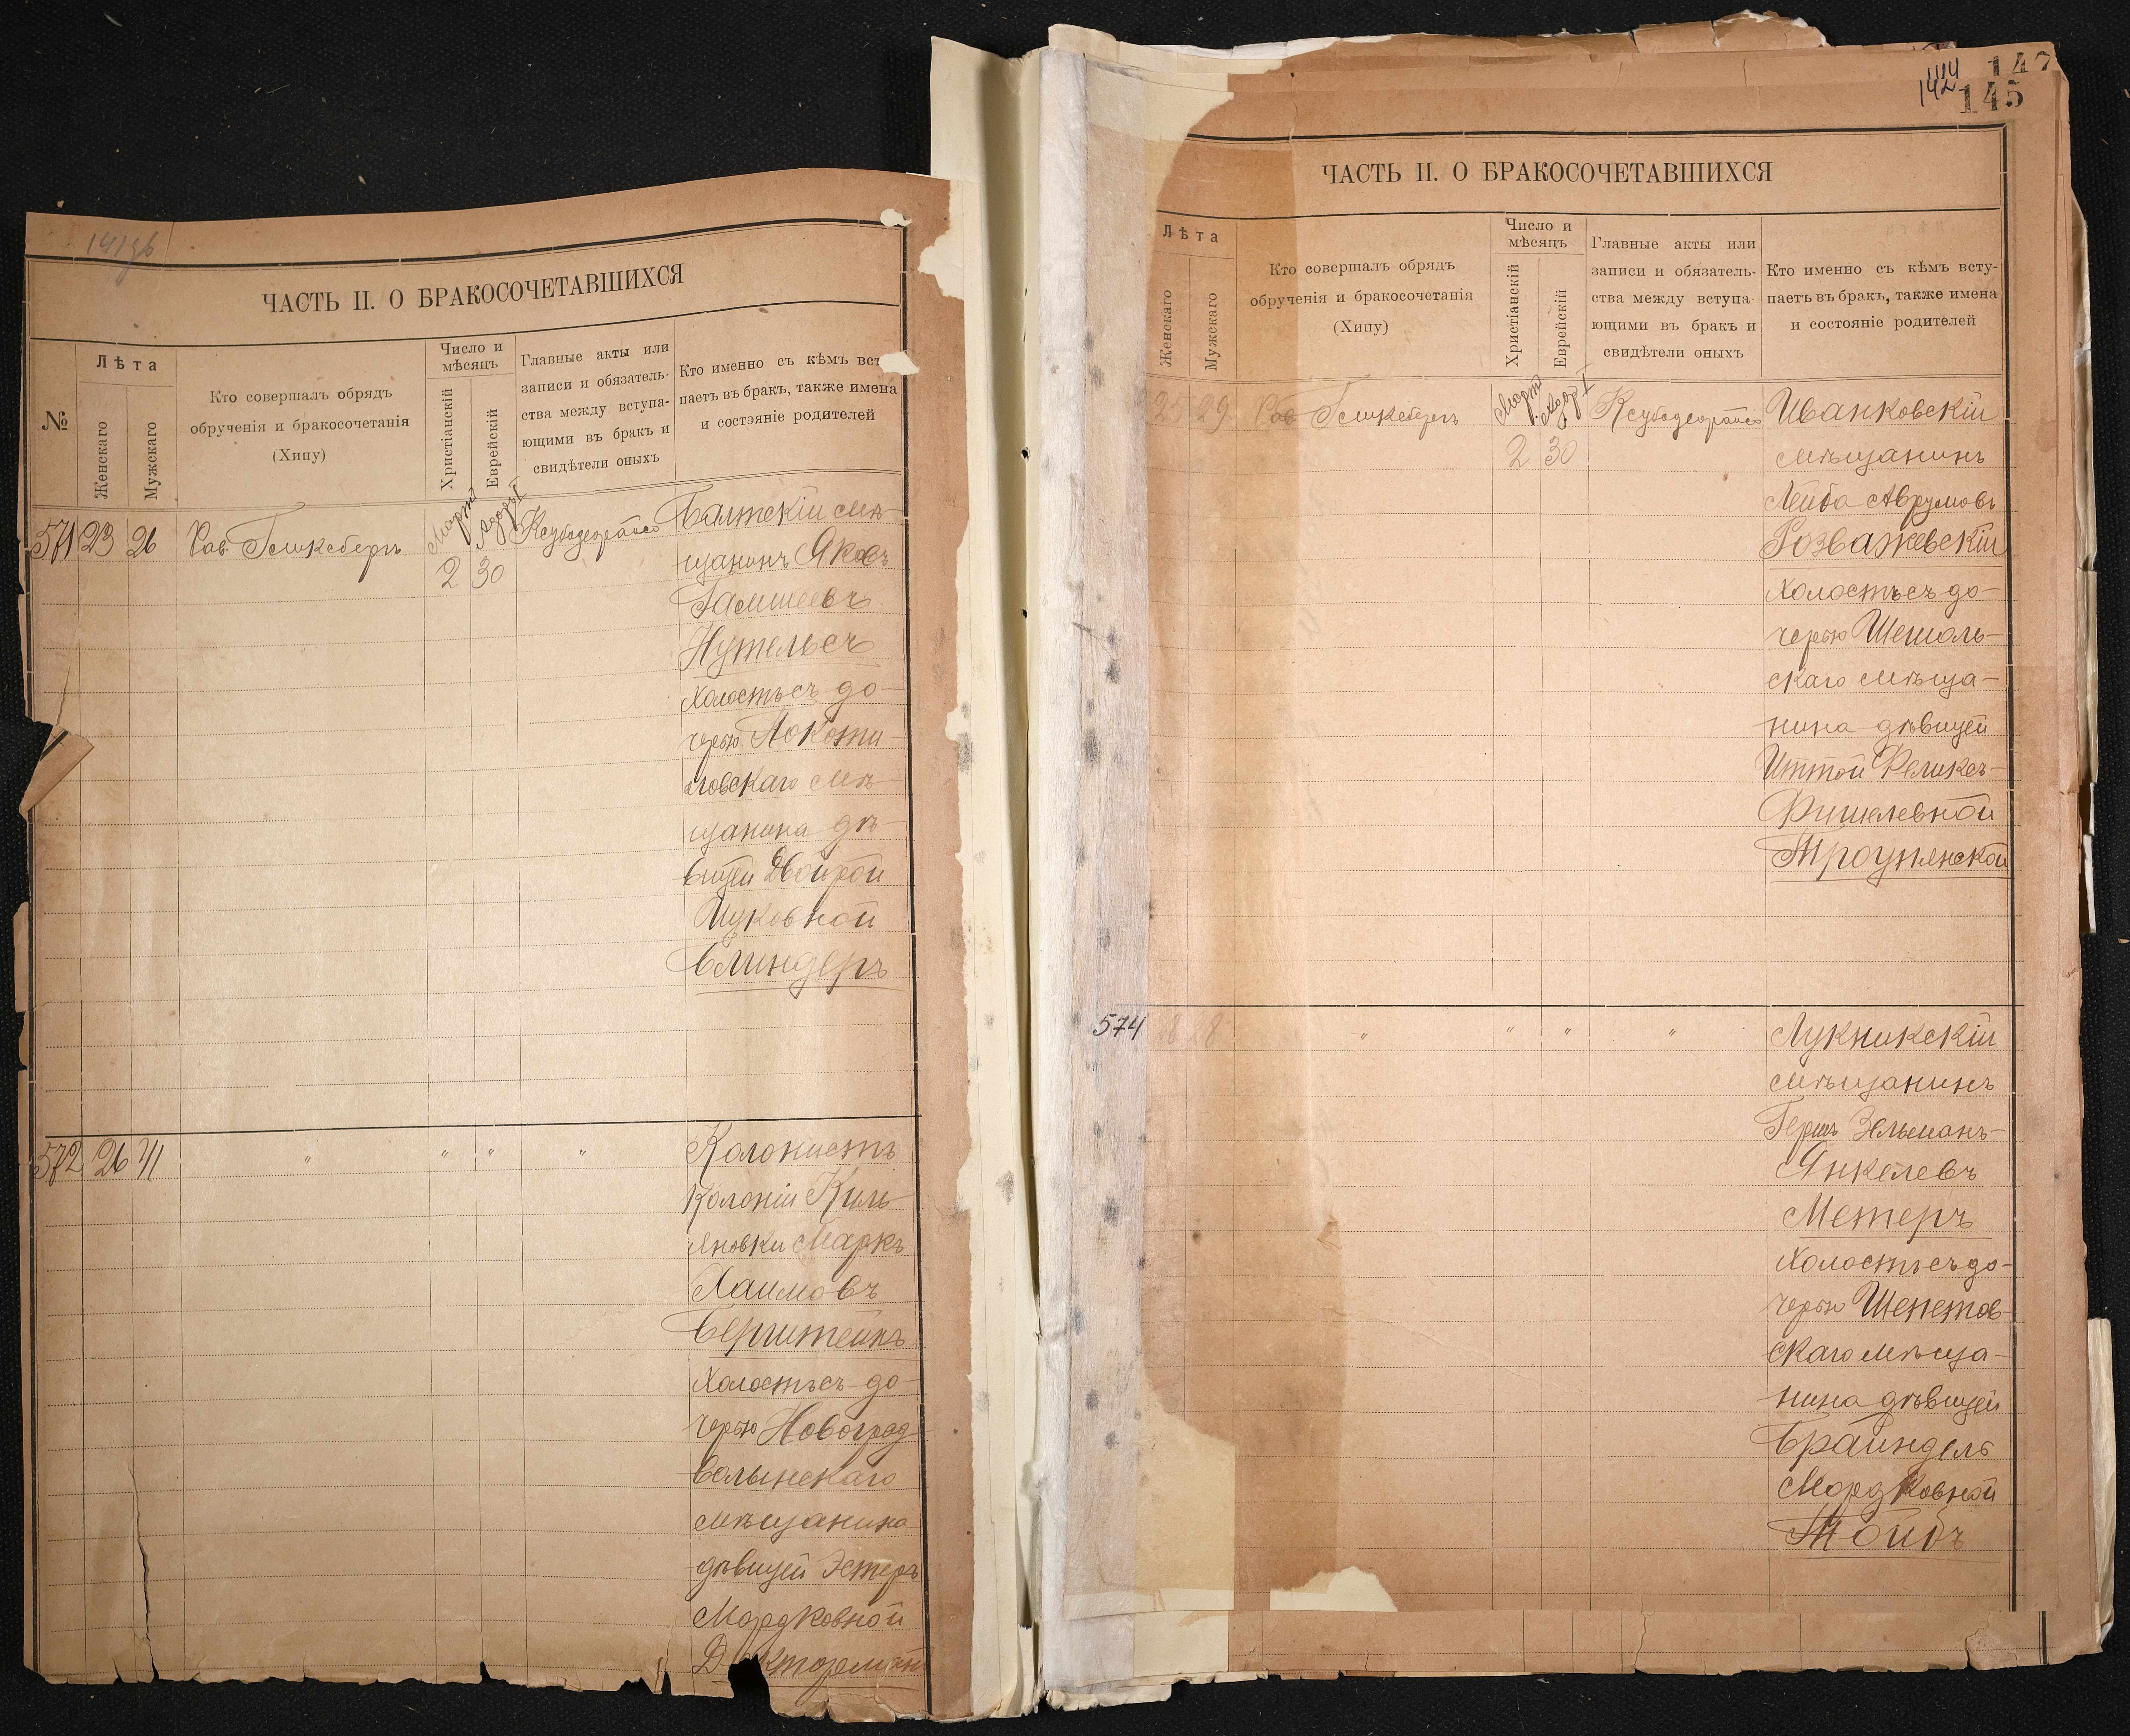 141 об
ЧАСТЬ II. О БРАКОСОЧЕТАВШИХСЯ
№
Лѣта
Женскаго
Мужскаго
Кто совершалъ обрядъ
обрученія и бракосочетанія
(Хипу)
Число и
мѣсяцъ
Христіанскій
Еврейскій
Главные акты или
записи и обязатель-
ства между вступа-
ющими въ бракъ и
свидѣтели оныхъ
Кто именно съ кѣмъ вст
паетъ въ бракъ, также имена
и состояніе родителей
571 23 26 Рав.
Мартъ 2
Адаръ I 30
Балтскій мѣ-
щанинъ Яковъ
Нутельсъ
холостъ съ до-
черью
говскаго мѣ-
щанина дѣ-
вицей Двойрой
Ицковной
Блиндеръ
572 26 41 " " " "
Колонистъ
Колоніи Киль-
яновки Маркъ
Хаимовъ
Берштейнъ
холостъ съ до-
черью Новоград
волынскаго
мѣщанина
дѣвицей Эстеръ
Мордковной
142
145
ЧАСТЬ II. О БРАКОСОЧЕТАВШИХСЯ
Лѣта
Женскаго
Мужскаго
Кто совершалъ обрядъ
обрученія и бракосочетанія
(Хипу)
Число и
мѣсяцъ
Христіанскій
Еврейскій
Главные акты или
записи и обязатель-
ства между вступа-
ющими въ бракъ и
свидѣтели оныхъ
Кто именно съ кѣмъ всту-
паетъ въ бракъ, также имена
и состояніе родителей
25 29 Рав
Мартъ 2
Адаръ I 30
Иванковскій
мѣщанинъ
Лейба Аврумовъ
Розважевскій
холостъ съ до-
черью
скаго мѣща-
нина дѣвицей
Иттой
Фишелевной
Троцянской
574 28 " " " "
Лукникскій
мѣщанинъ
Гершъ Зельманъ-
Янкелевъ
Метеръ
холостъ съ до-
черью Шепетов-
скаго мѣща-
нина дѣвицей
Брайндель
Мордковной
Тойбъ